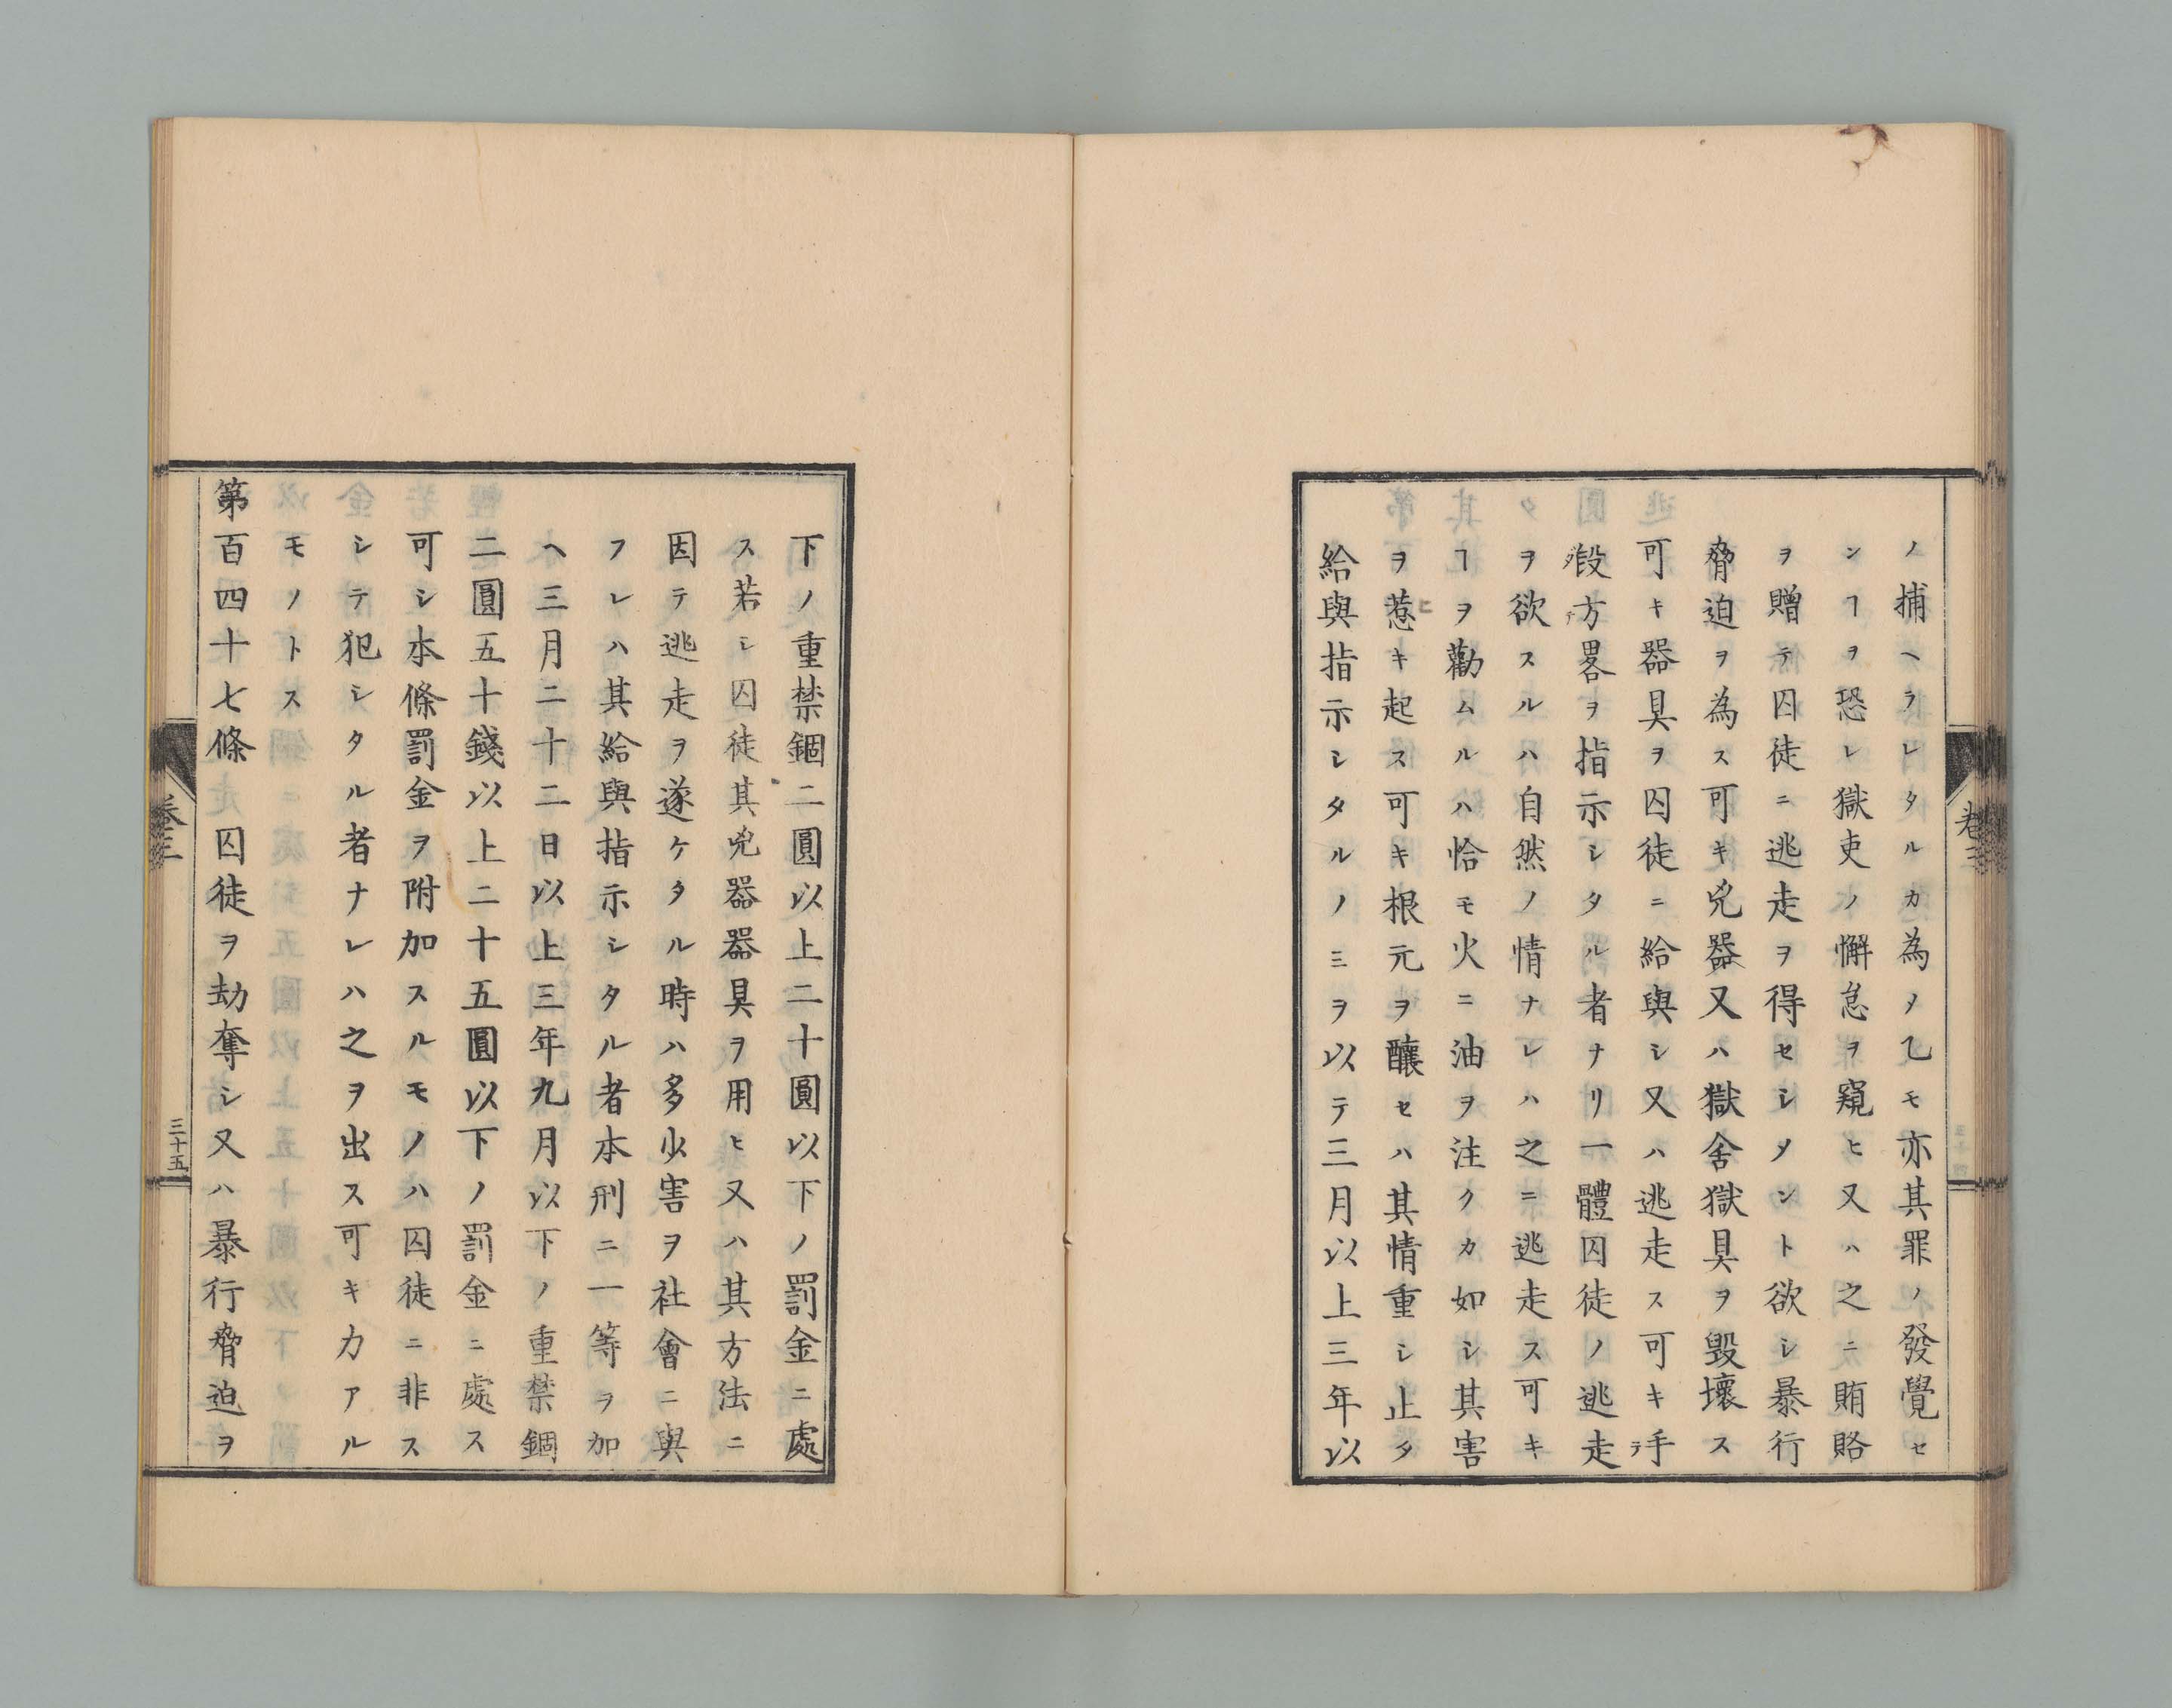 ノ捕ヘラレタルカ為メ乙モ亦其罪ノ發覺セ
ンヿヲ恐レ獄吏ノ懈怠ヲ窺ヒ又ハ之ニ賄賂
ヲ贈テ囚徒ニ逃走ヲ得セシメント欲シ暴行
脅迫ヲ為ス可キ兇器又ハ獄舍獄具ヲ毀壞ス
可キ器具ヲ囚徒ニ給與シ又ハ逃走ス可キ手
段方畧ヲ指示シタル者ナリ一體囚徒ノ逃走
ヲ欲スルハ自然ノ情ナレハ之ニ逃走ス可キ
ヿヲ勸ムルハ恰モ火ニ油ヲ注クカ如シ其害
ヲ惹キ起ス可キ根元ヲ釀セハ其情重シ止タ
給與指示シタルノミヲ以テ三月以上三年以
卷三
下ノ重禁錮二圓以上二十圓以下ノ罰金ニ處
ス若シ囚徒其兇器器具ヲ用ヒ又ハ其方法ニ
因テ逃走ヲ遂ケタル時ハ多少害ヲ社會ニ與
フレハ其給與指示シタル者本刑ニ一等ヲ加
ヘ三月二十二日以上三年九月以下ノ重禁錮
二圓五十錢以上二十五圓以下ノ罰金ニ處ス
可シ本條罰金ヲ附加スルモノハ囚徒ニ非ス
シテ犯シタル者ナレハ之ヲ出ス可キ力アル
モノトス
第百四十七條 囚徒ヲ劫奪シ又ハ暴行脅迫ヲ
卷三
三十五